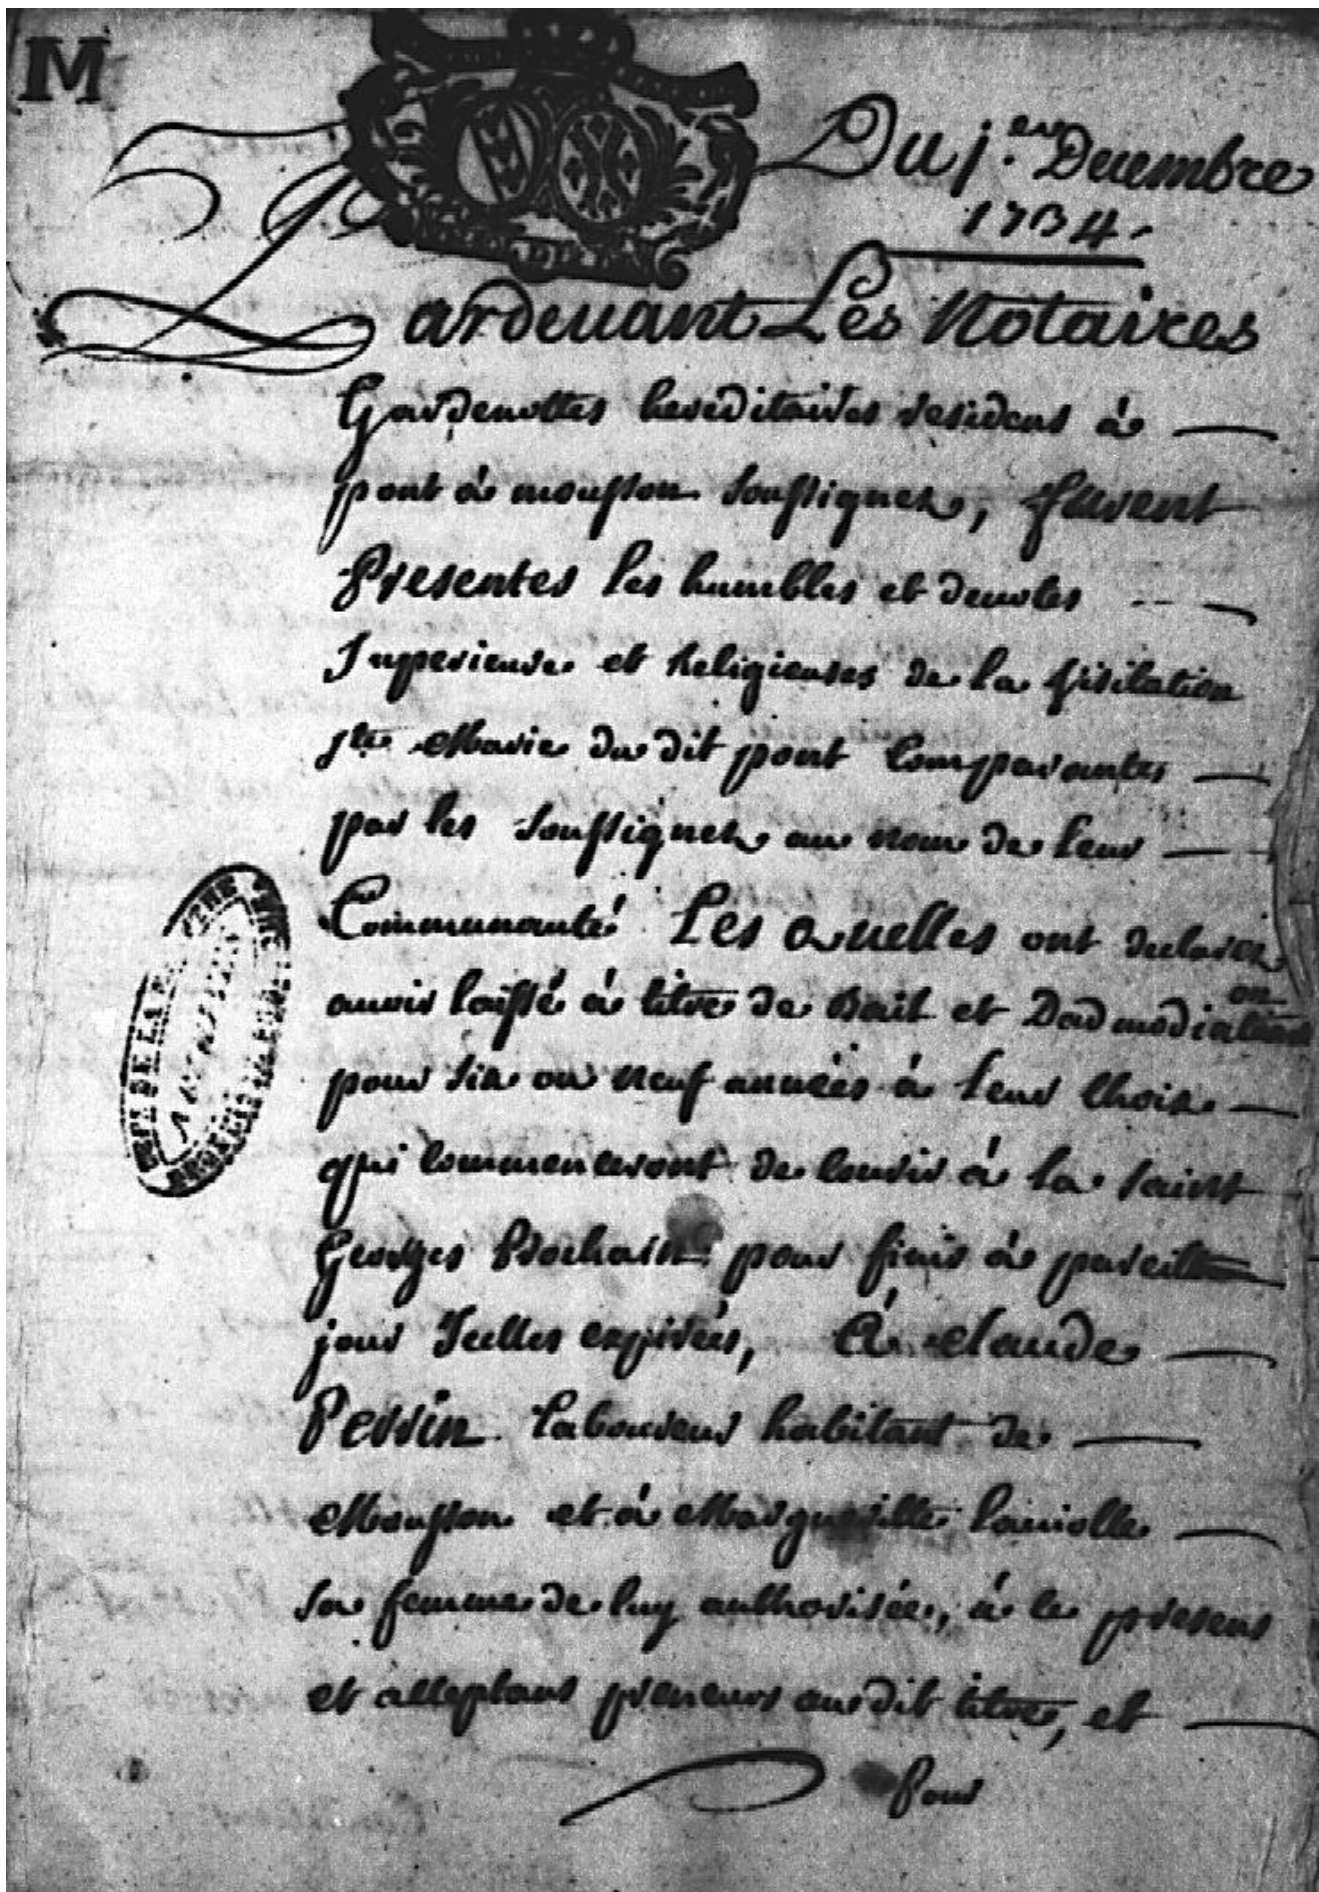 M
Du j.er Decembre
1734.
Pardeuant Les Notaires
Gardenottes hereditaires residens à
pont à mousson soussignez, furent
Presentes les humbles et deuotes
Superieure et Religieuses de la Visitation
ste Marie du dit pont Comparantes
par les soussignez au nom de leur
Communauté Les quelles ont declarez
auoir laissé à titre de Bail et Dadmodiation
pour six ou neuf années à leur choix
qui commenceront de courir à la saint
Georges Prochain pour finir à pareille
jour Icelles expirées, à Claude
Perrin laboureur habitant de
Mousson et à Margueritte
sa femme de luy authorisée, à ce presens
et acceptans preneurs audit titre, et
Pour